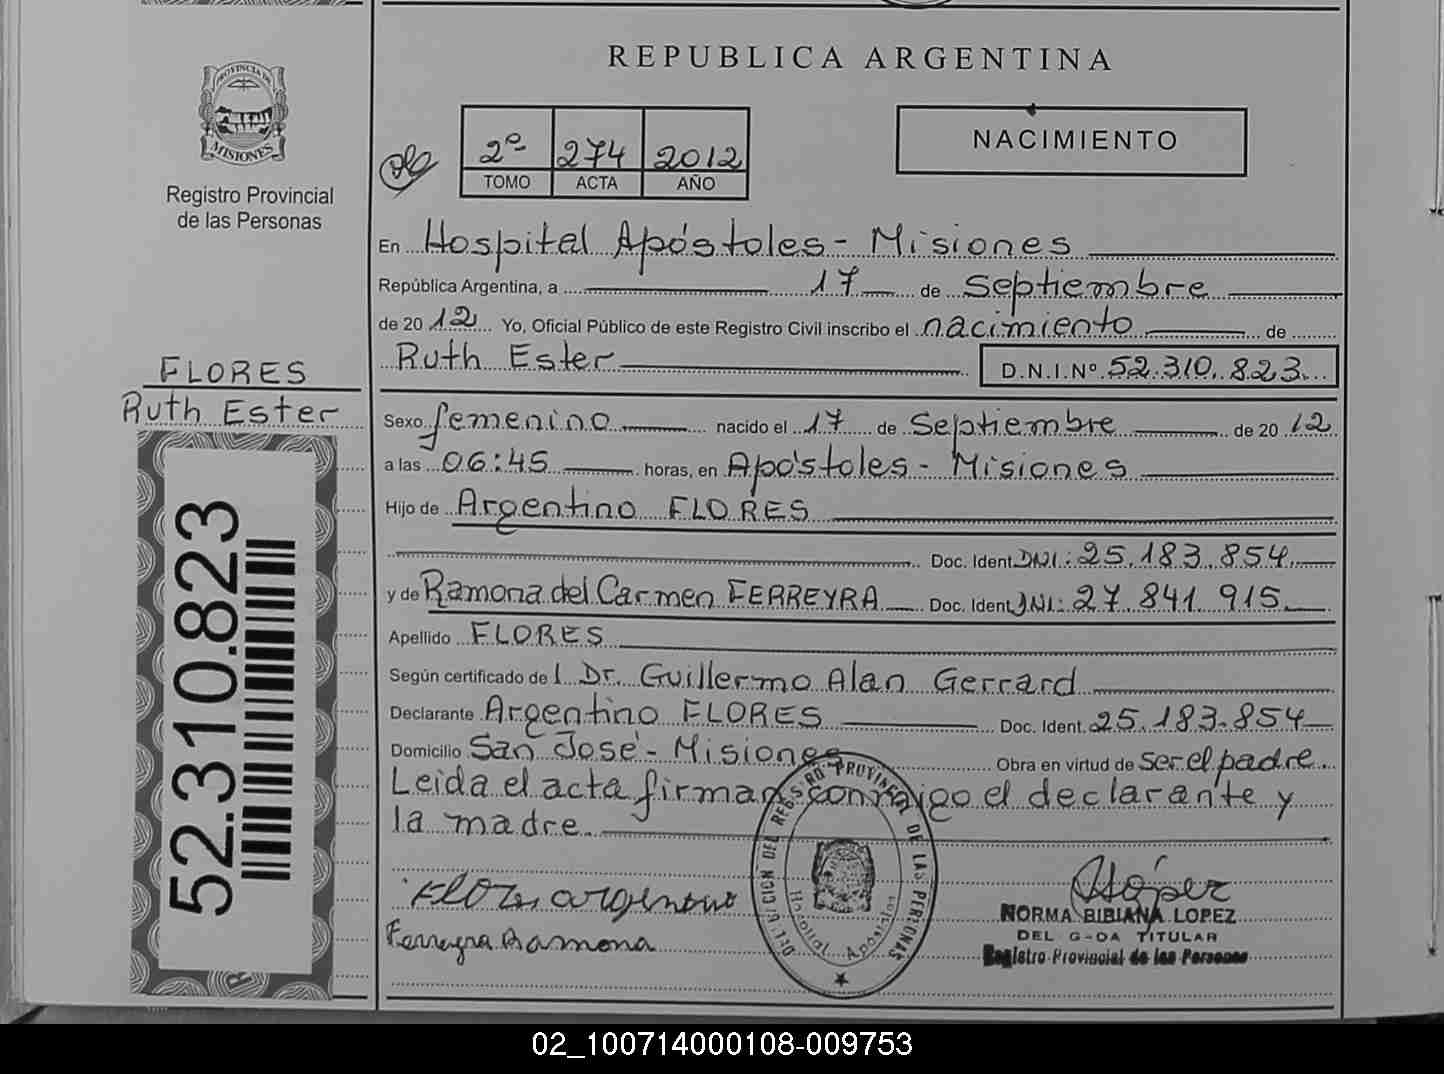 REPUBLICA ARGENTINA
PROVINCIA DE
MISIONES
Registro Provincial
de las Personas
2º 274 2012
TOMO ACTA AÑO
NACIMIENTO
En Hospital Apóstoles - Misiones
República Argentina, a 17 de Septiembre
de 2012 Yo, Oficial Público de este Registro Civil inscribo el nacimiento de
Ruth Ester D.N.I.Nº 52.310.823
FLORES
Ruth Ester
52.310.823
Sexo femenino nacido el 17 de Septiembre de 2012
a las 06:45 horas, en Apóstoles - Misiones
Hijo de Argentino FLORES
Doc. Ident DNI: 25.183.854
y de Ramona del Carmen FERREYRA Doc. Ident DNI: 27.841.915
Apellido FLORES
Según certificado de l Dr. Guillermo Alan Gerrard
Declarante Argentino FLORES Doc. Ident. 25.183.854
Domicilio San José - Misiones Obra en virtud de ser el padre.
Leida el acta firman conmigo el declarante y
la madre.
Flores argentino
Ferreyra Ramona
DEL REGISTRO PROVINCIAL DE LAS PERSONAS
Hospital Apóstoles
López
NORMA BIBIANA LOPEZ
DEL G-DA TITULAR
Registro Provincial de las Personas
02_100714000108-009753